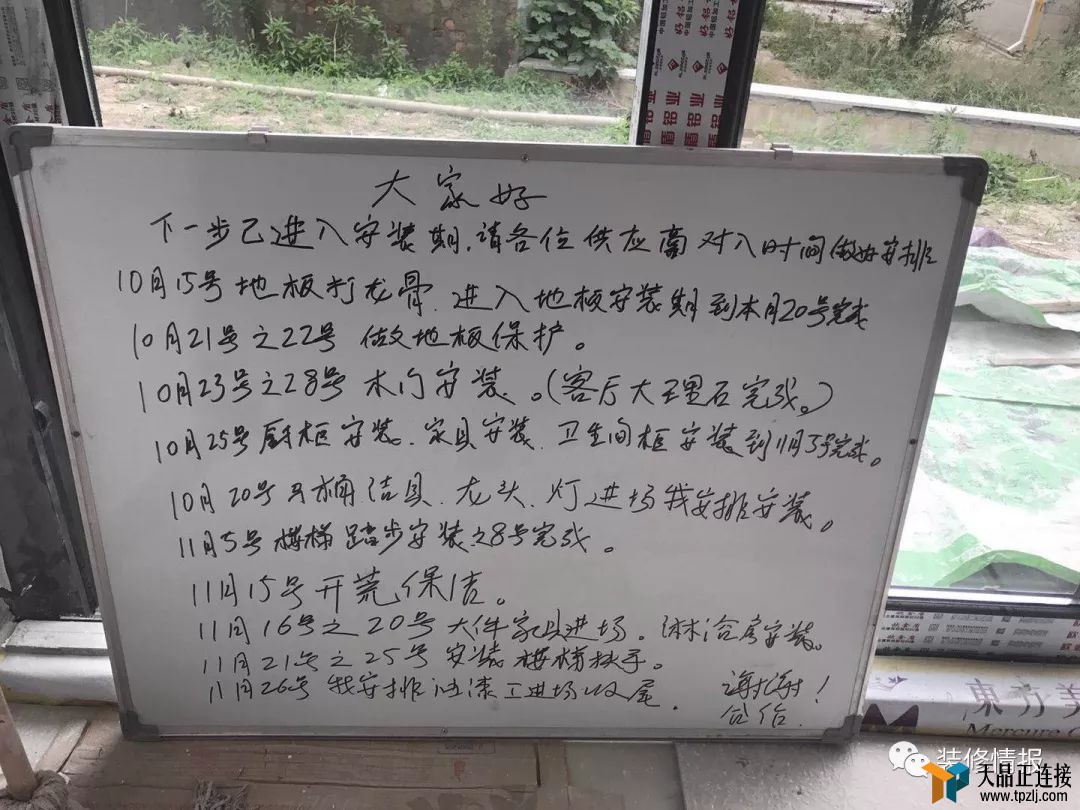 大家好
下一步已进入安装期.请各位供应商对入时间做好安排
10月15号地板打龙骨.进入地板安装期到本月20号完成
10月21号之22号 做地板保护。
10月23号之28号 木门安装。(客厅大理石完成。)
10月25号厨柜安装.家具安装.卫生间柜安装到11月5号完成。
10月20号马桶洁具.龙头.灯进场我安排安装。
11月5号楼梯踏步安装之8号完成。
11月15号开荒保洁。
11月16号之20号大件家具进场.淋浴房安装。
11月21号之25号安装楼梯扶手。
11月26号我安排油漆工进场收尾.
谢谢!
合作.
東方美
Mercure
装修情报
天品正连接
www.tpzlj.com